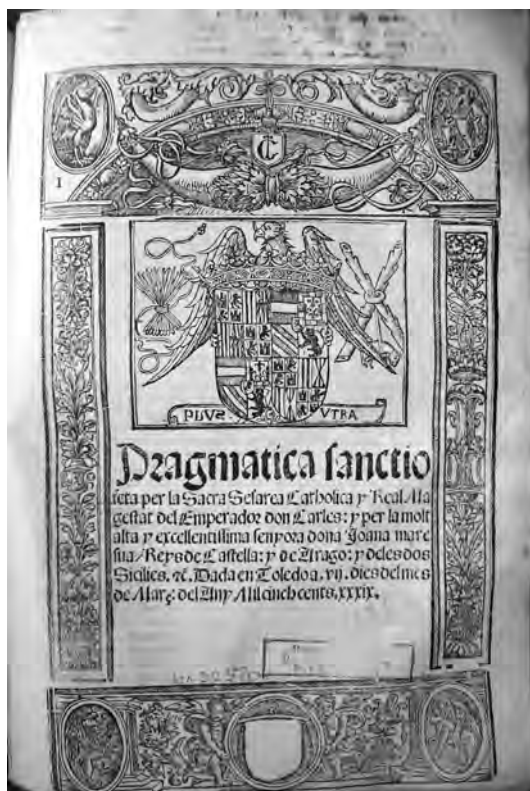 C
I
PLVS VTRA
Pragmatica sanctio
feta per la Sacra Cesarea Catholica y Real Ma
gestat del Emperador don Carles: y per la molt
alta y excellentissima senyora dona Joana mare
sua/Reys de Castella: y de Arago: y de les dos
Sicilies. ⁊c̄. Dada en Toledo a. vij. dies del mes
de Març: del Any Mil cinch cents. xxxix.